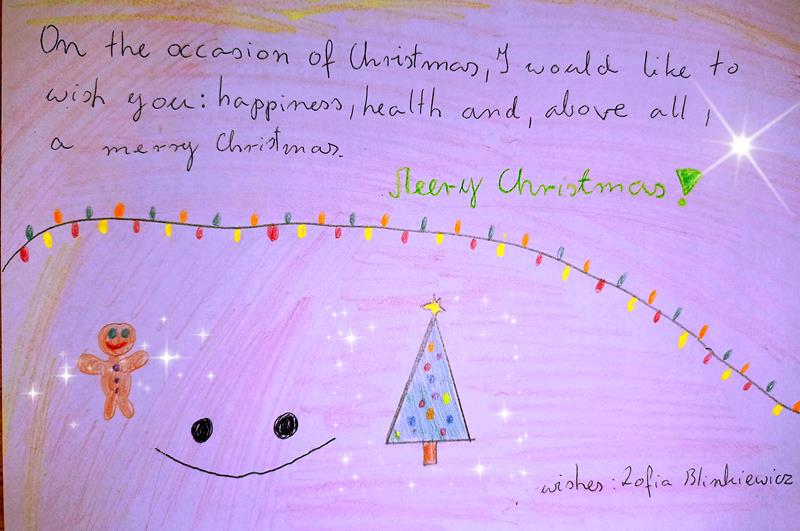 On the occasion of Christmas, I would like to
wish you: happiness, health and, above all,
a merry Christmas.
Meery Christmas!
wishes: Zofia Blinkiewicz